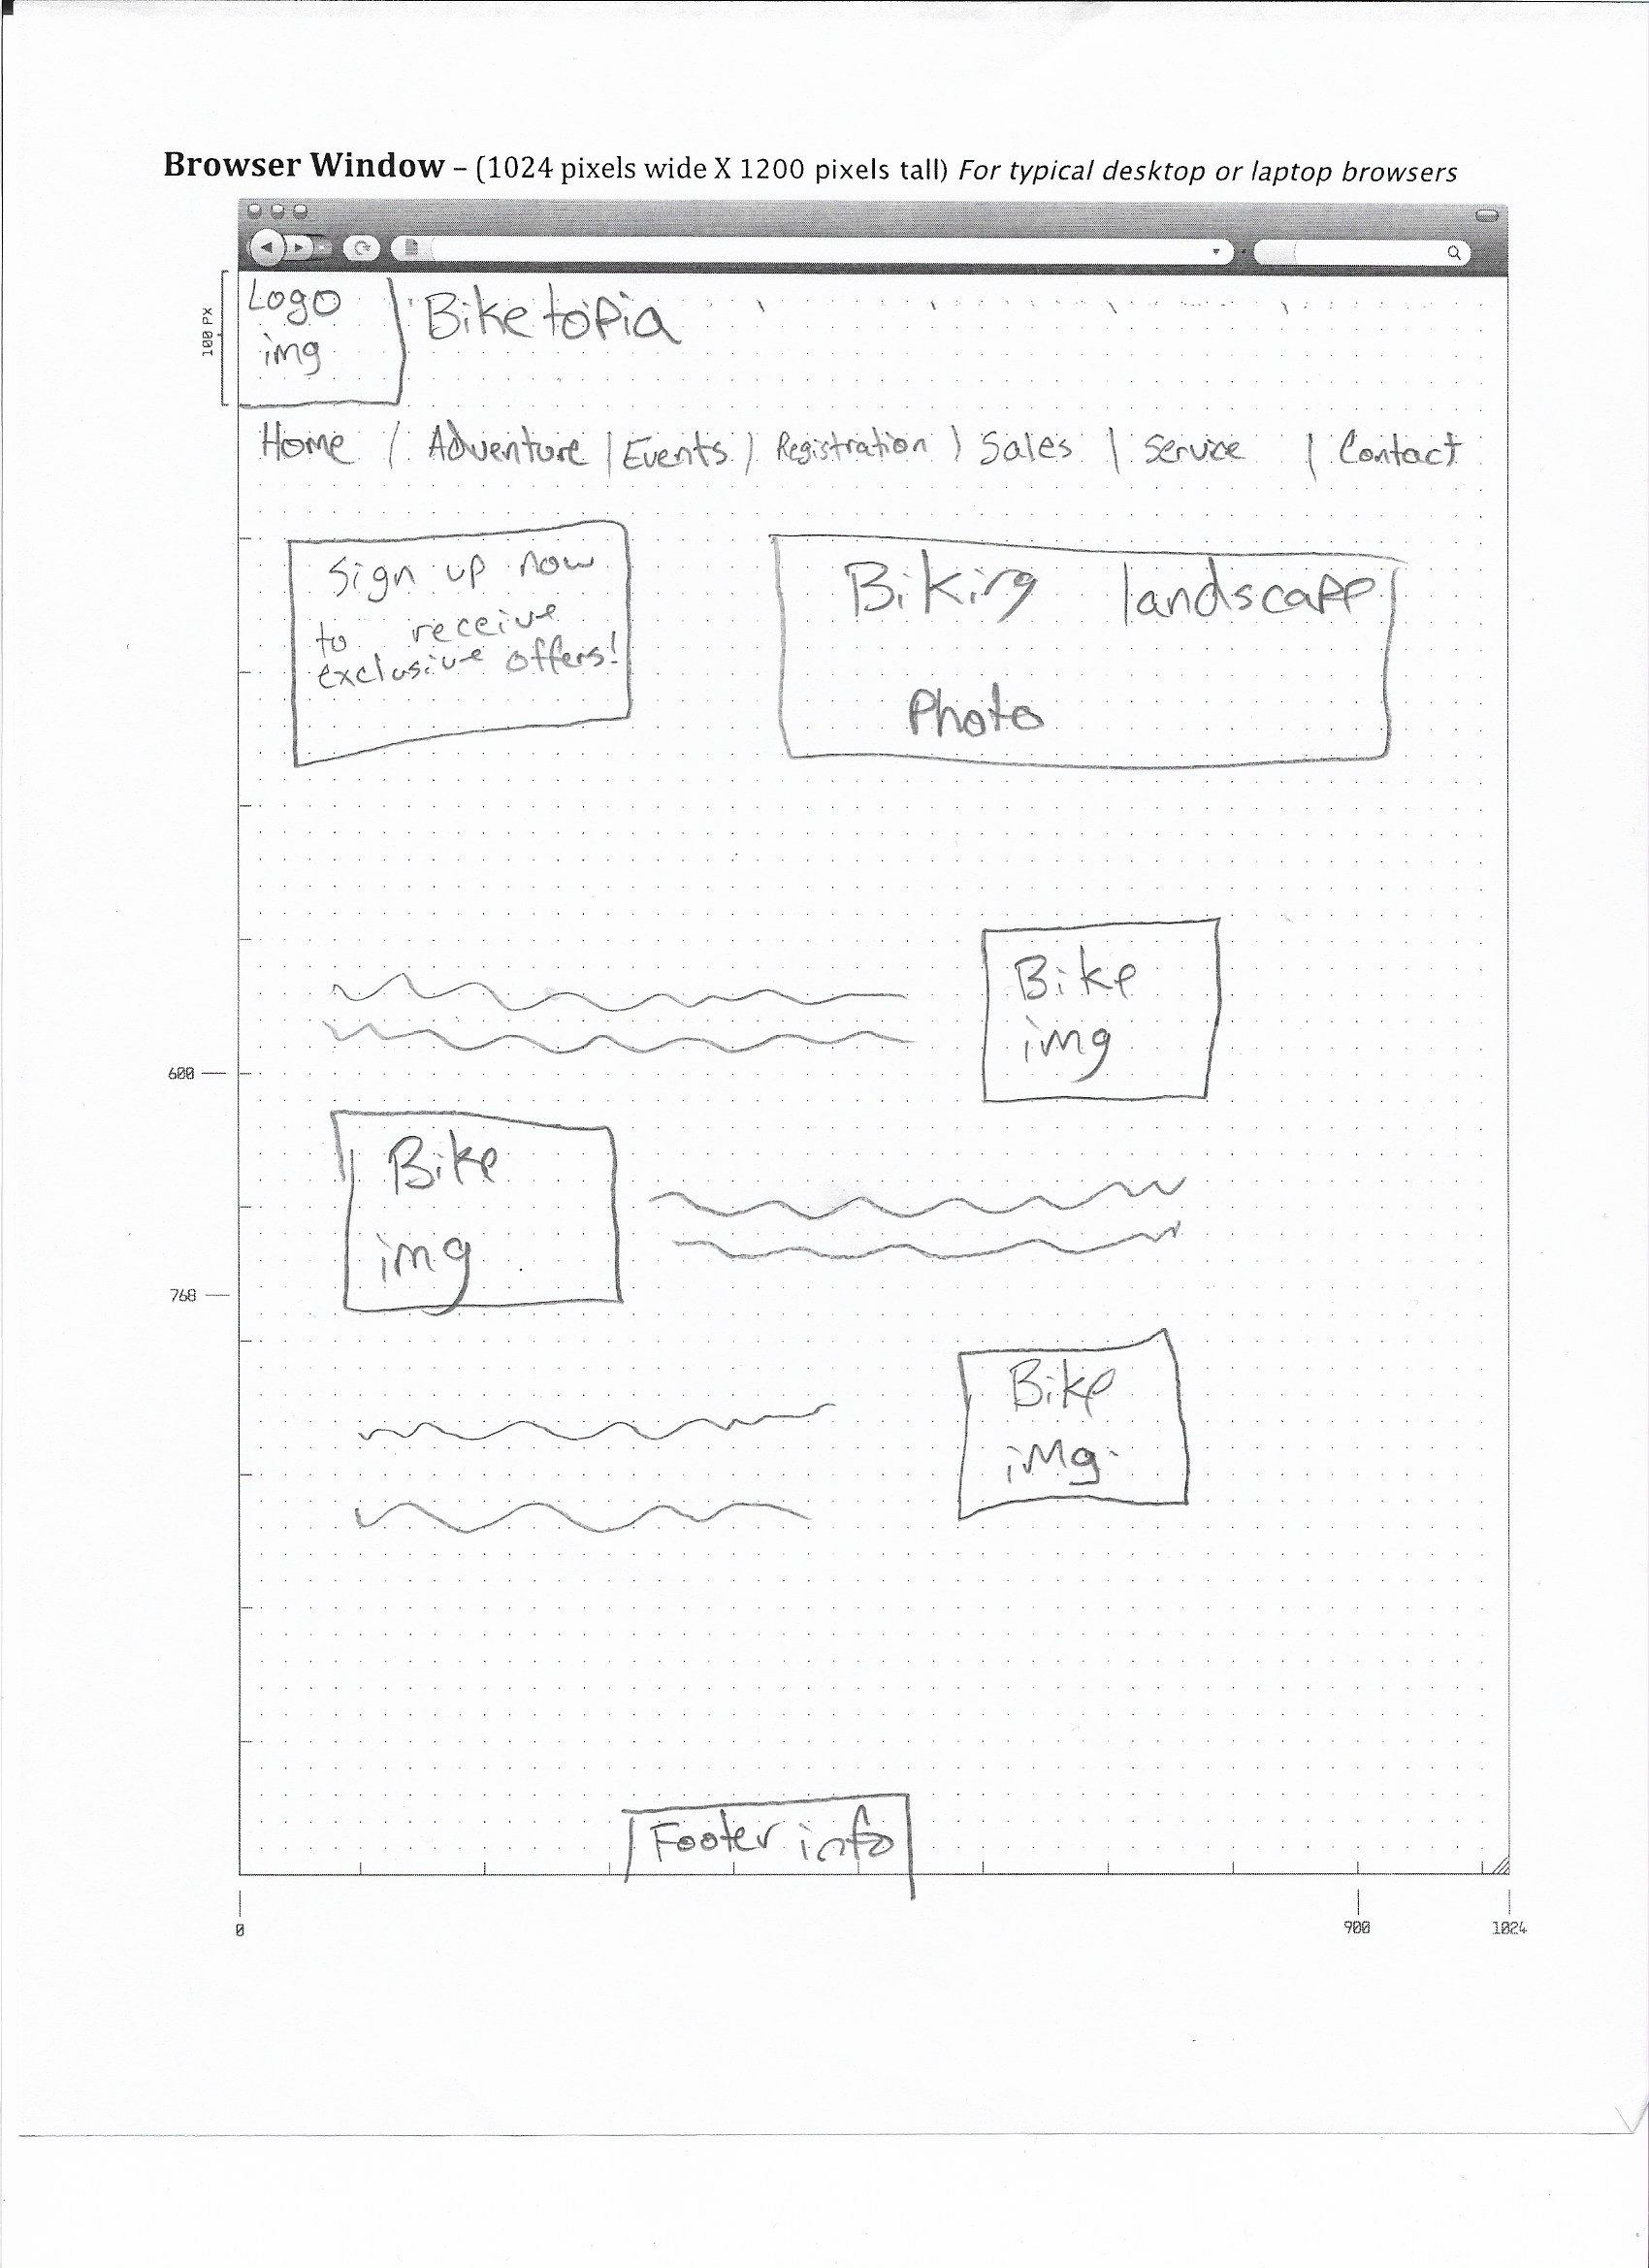 Browser Window – (1024 pixels wide X 1200 pixels tall) For typical desktop or laptop browsers
100 PX
Logo
img
Biketopia
Home / Adventure | Events | Registration | Sales | Service | Contact
Sign up now
to receive
exclusive offers!
Biking landscape
Photo
Bike
img
600
Bike
img
768
Bike
img
Footer info
0
900
1024